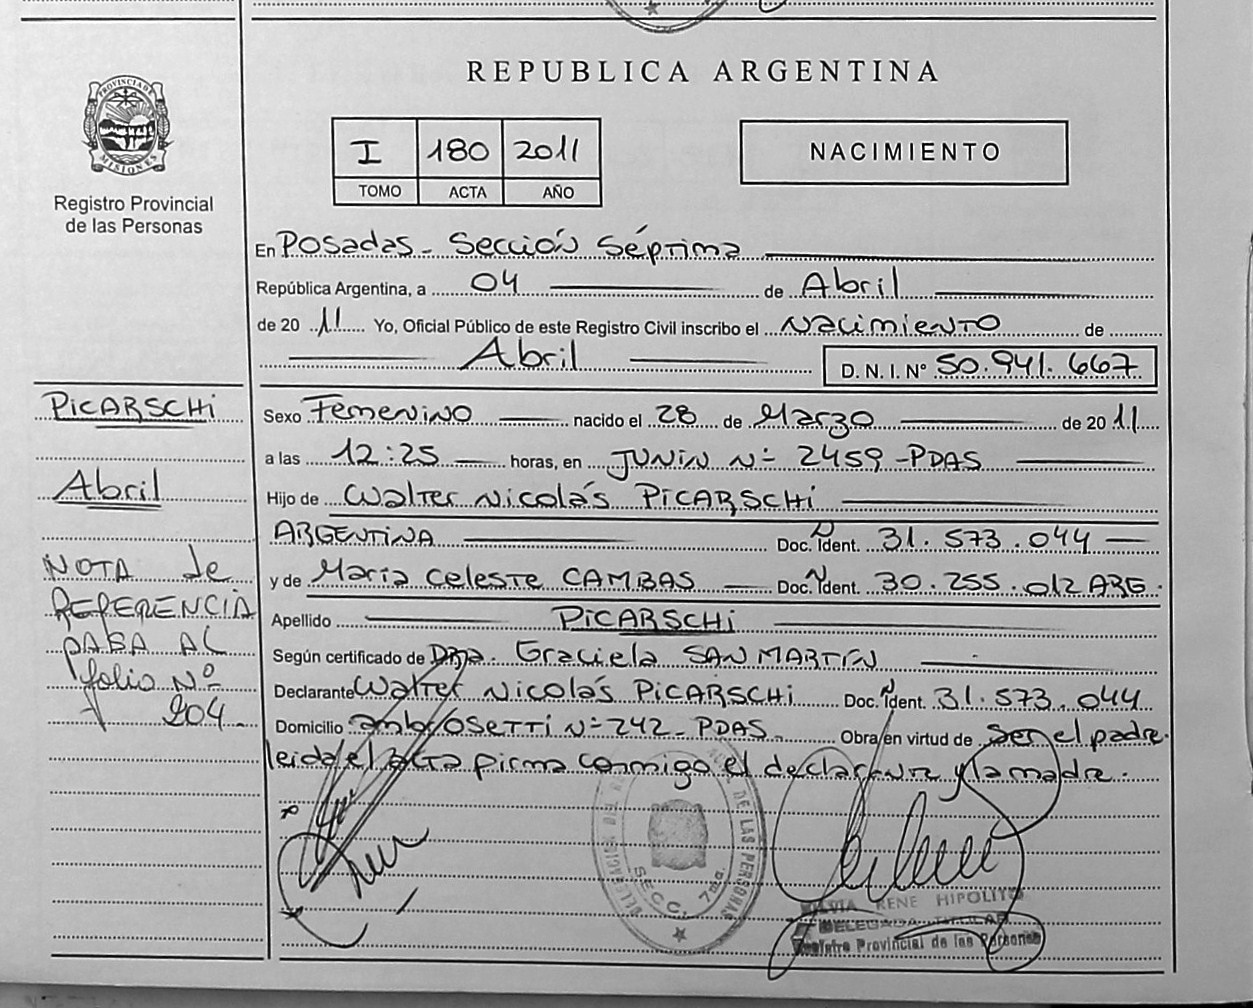 REPUBLICA ARGENTINA
PROVINCIA DE
MISIONES
Registro Provincial
de las Personas
I 180 2011
TOMO ACTA AÑO
NACIMIENTO
En Posadas - Sección Séptima
República Argentina, a 04 de Abril
de 20 11 Yo, Oficial Público de este Registro Civil inscribo el Nacimiento de
Abril
D. N. I. Nº 50.941.667
PICARSCHI
Abril
NOTA de
REFERENCIA
PASA AL
folio Nº
204
Sexo Femenino nacido el 28 de Marzo de 20 11
a las 12:25 horas, en JUNIN Nº 2459 - PDAS
Hijo de Walter Nicolás PICARSCHI
ARGENTINA Doc. Ident. 31.573.044
y de María Celeste CAMBAS Doc. Ident. 30.255.012 ARG.
Apellido PICARSCHI
Según certificado de Dra. Graciela SAN MARTÍN
Declarante Walter Nicolás PICARSCHI Doc. Ident. 31.573.044
Domicilio Ambrosetti Nº 242 - PDAS. Obra en virtud de ser el padre.
leida el acta firma conmigo el declarante y la madre.
DELEGACION DE LAS PERSONAS
SECC. 7ma.
RENE HIPOLITO
DELEGADA TITULAR
Registro Provincial de las Personas